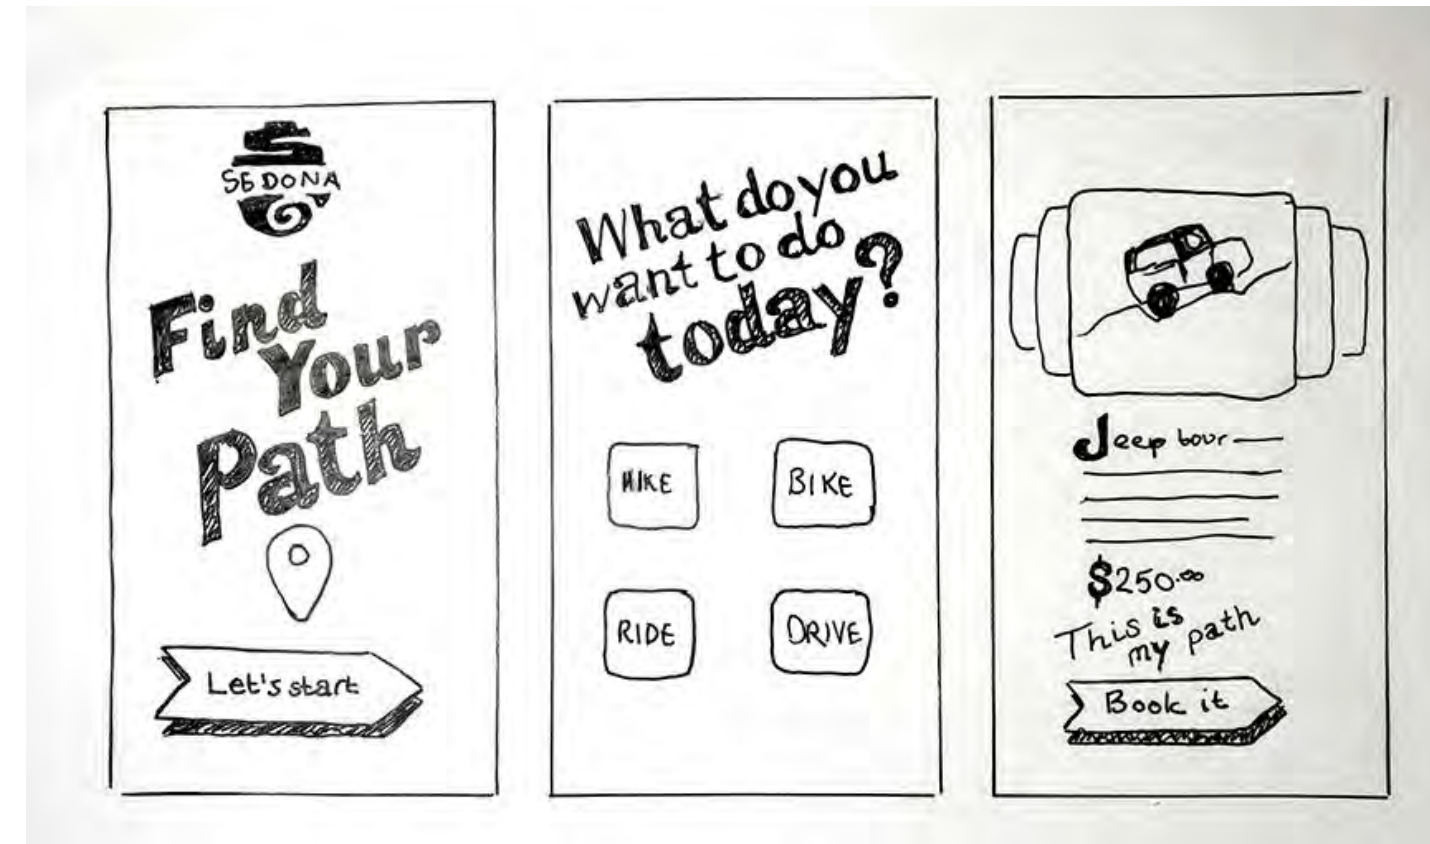 SEDONA
Find
Your
Path
Let's start
What do you
want to do
today?
HIKE
BIKE
RIDE
DRIVE
Jeep tour
$250.00
This is
my path
Book it